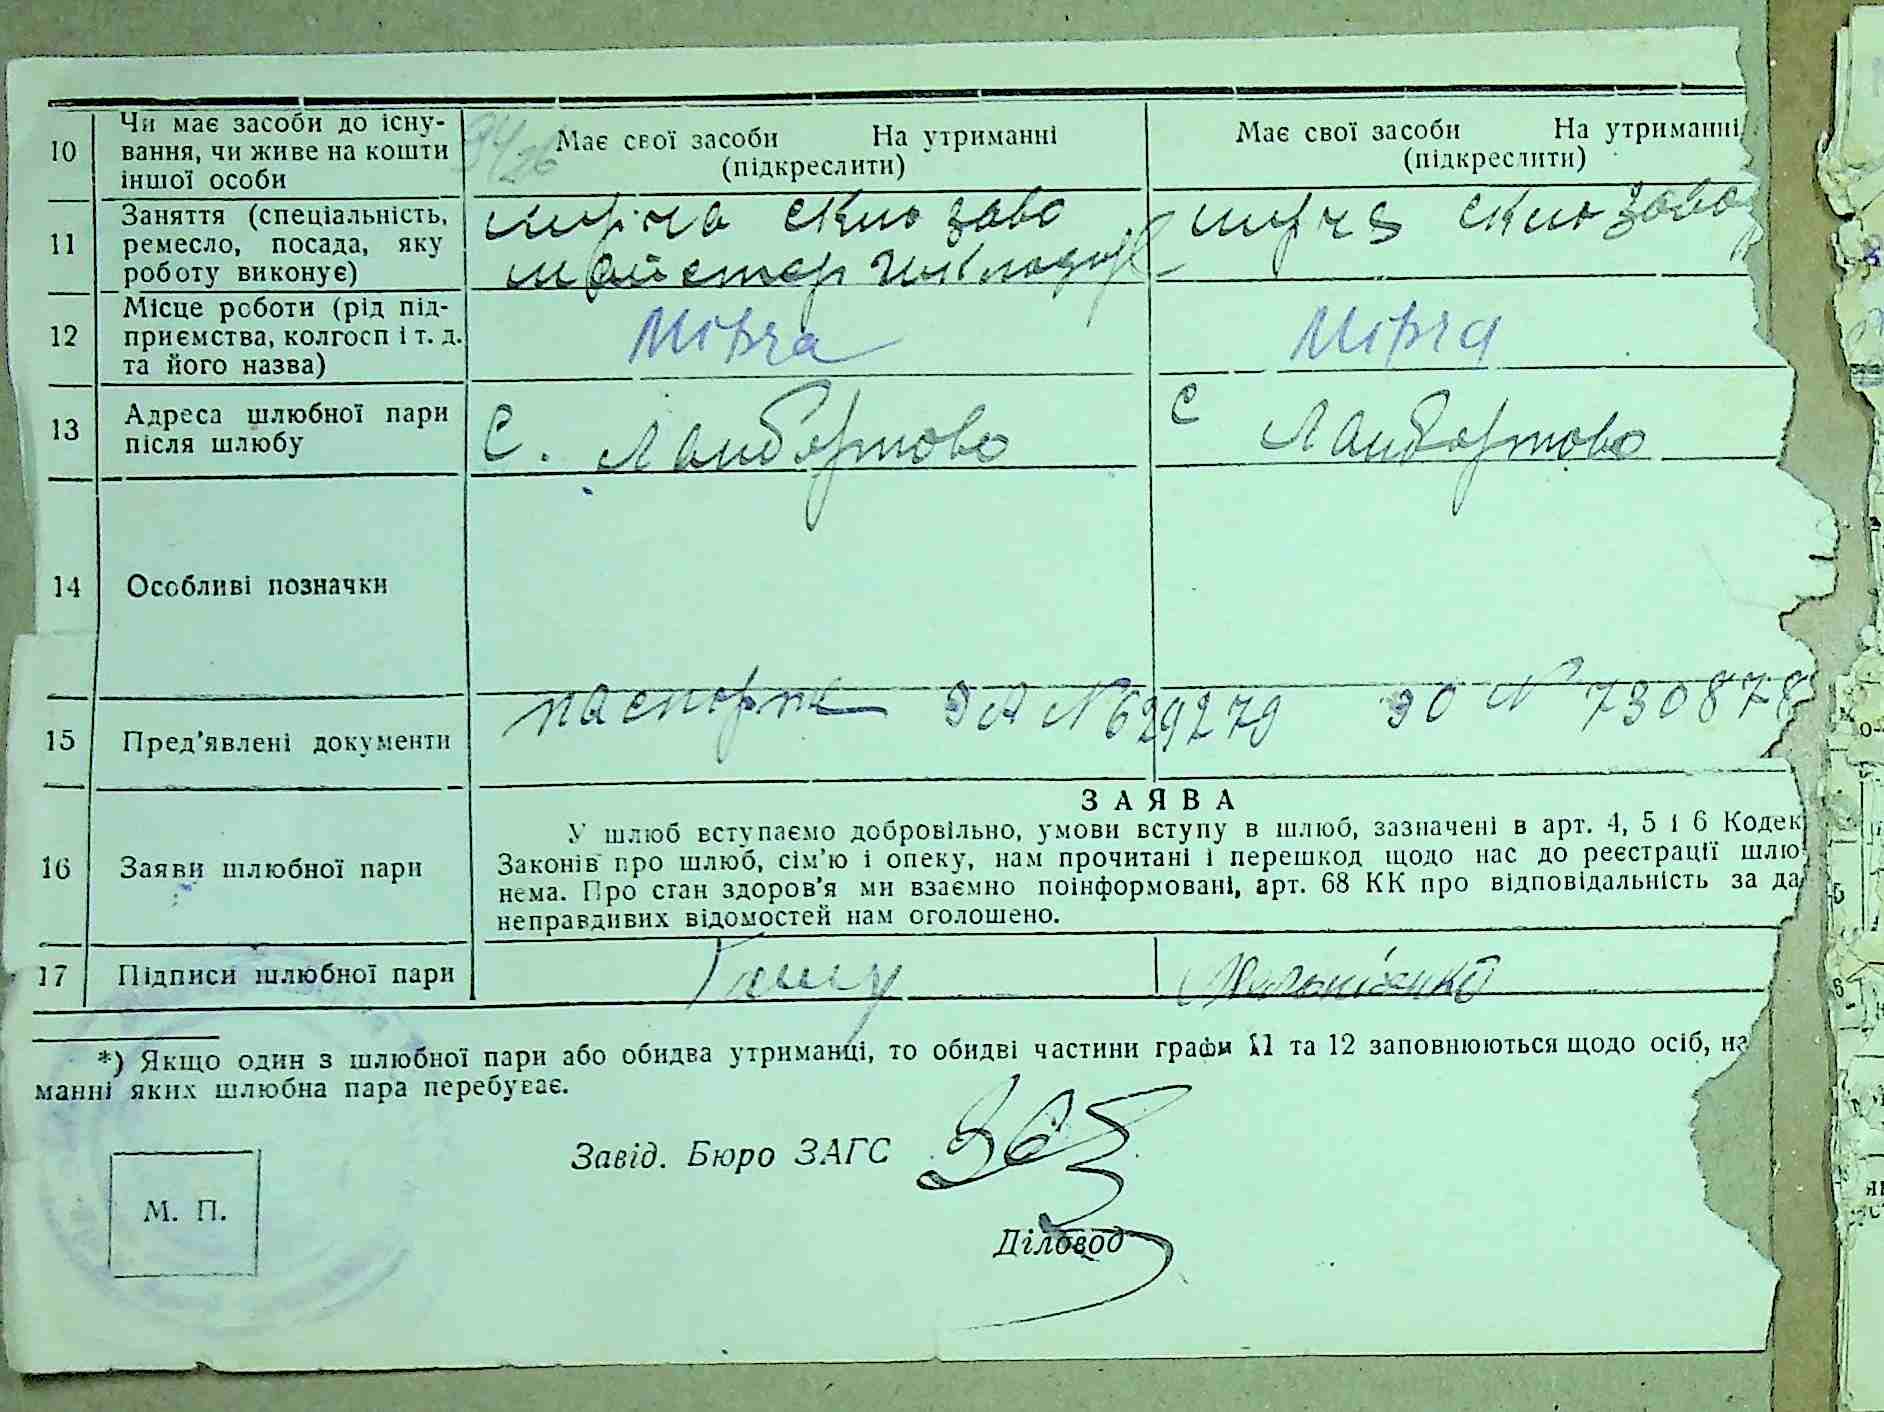 10
Чи має засоби до існу-
вання, чи живе на кошти
іншої особи
Має свої засоби На утриманні
(підкреслити)
Має свої засоби На утриманні
(підкреслити)
11
Заняття (спеціальність,
ремесло, посада, яку
роботу виконує)
12
Місце роботи (рід під-
приємства, колгосп і т. д.
та його назва)
Мірча
Мірча
13
Адреса шлюбної пари
після шлюбу
с. Ламбертово
с Ламбертово
14
Особливі позначки
15
Пред'явлені документи
паспорт ЭА № 629279
ЭО № 730878
16
Заяви шлюбної пари
ЗАЯВА
У шлюб вступаємо добровільно, умови вступу в шлюб, зазначені в арт. 4, 5 і 6 Кодек
Законів про шлюб, сім'ю і опеку, нам прочитані і перешкод щодо нас до реєстрації шлю
нема. Про стан здоров'я ми взаємно поінформовані, арт. 68 КК про відповідальність за да
неправдивих відомостей нам оголошено.
17
Підписи шлюбної пари
*) Якщо один з шлюбної пари або обидва утриманці, то обидві частини графи 11 та 12 заповнюються щодо осіб, на
манні яких шлюбна пара перебуває.
Завід. Бюро ЗАГС
М. П.
Діловод